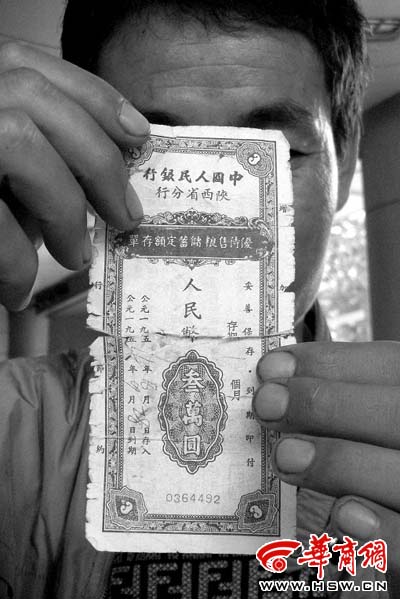 中國人民銀行
陝西省分行
優待售糧儲蓄定額存單
妥善保存·到期即付
存期 個月
人民幣
叁萬圓
公元一九五 年 月 日存入
公元一九五 年 月 日到期
0364492
華商網
WWW.HSW.CN